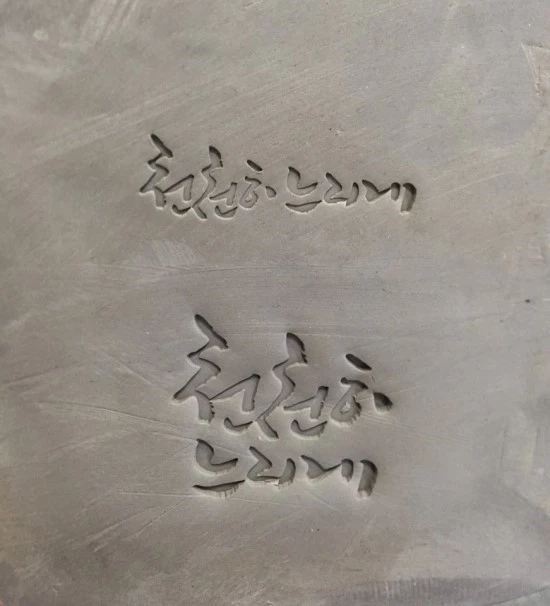 천천히 느리게
천천히
느리게